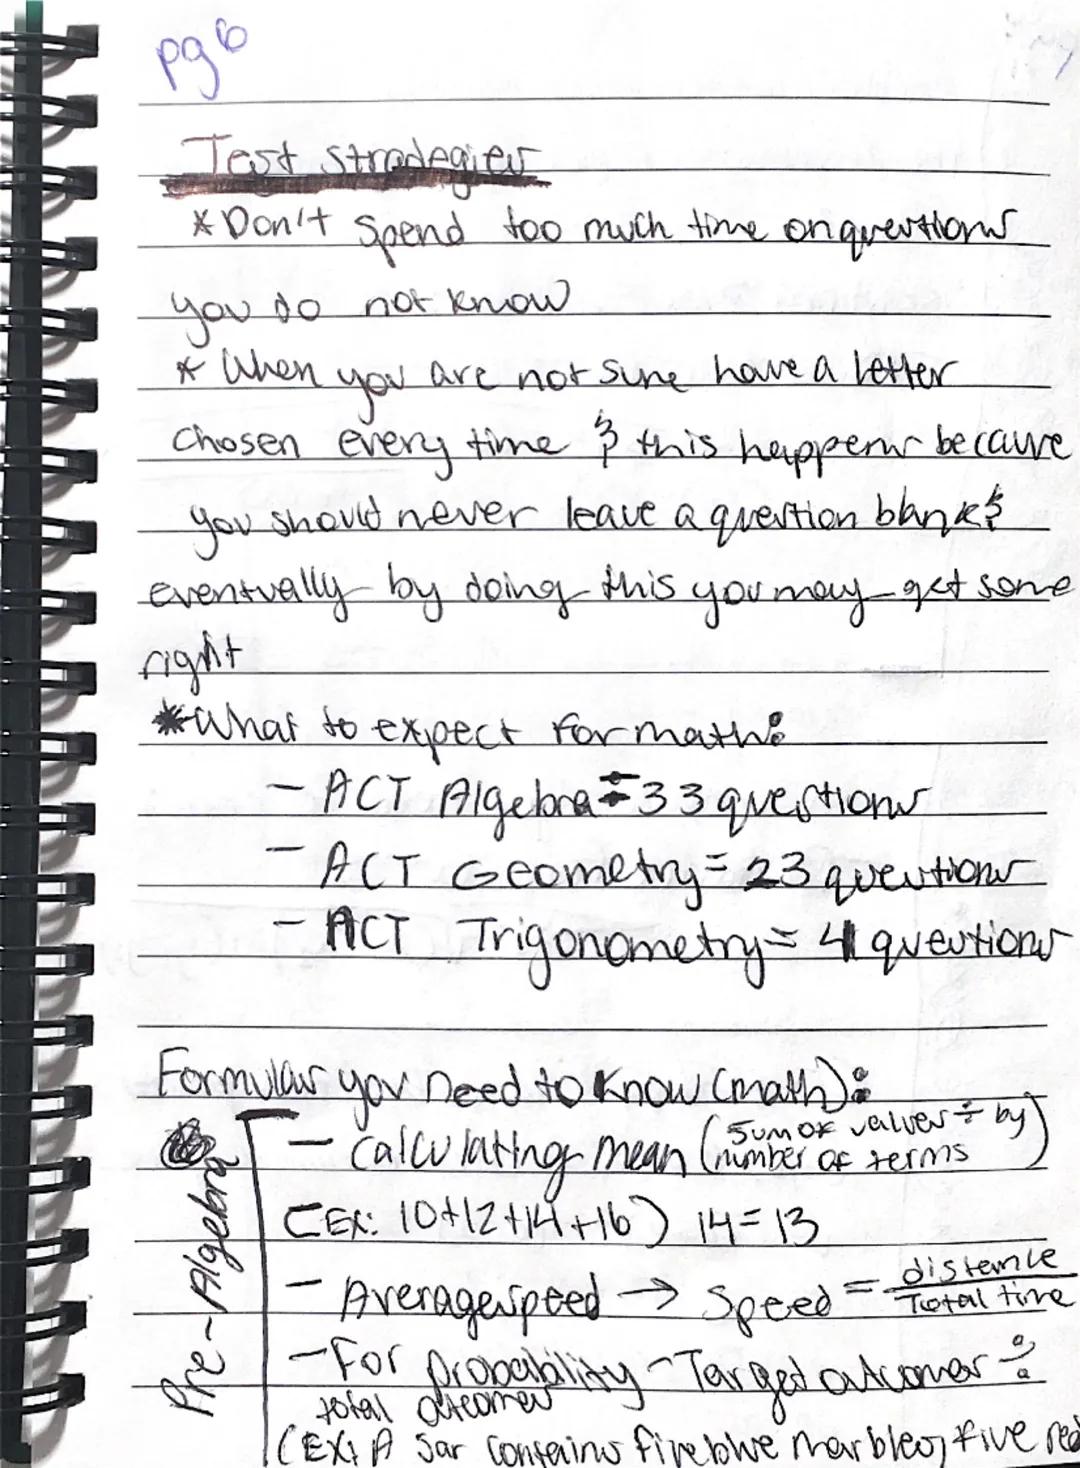 pg 6
Test stradegies
* Don't spend too much time on questions
you do not know
* When you are not sure have a letter
chosen every time & this happens because
you should never leave a question blank &
eventually by doing this you may get some
right
*What to expect for math:
- ACT Algebra = 33 questions
- ACT Geometry = 23 questions
- ACT Trigonometry = 4 questions
Formulas you need to know (math):
Pre-Algebra
- Calculating mean (sum of values ÷ by
number of terms)
(EX: 10+12+14+16) 14=13
- Average speed → Speed = distance
Total time
- For probability - Target outcomes ÷
total outcomes
(EX: A Jar contains five blue marbles, five red